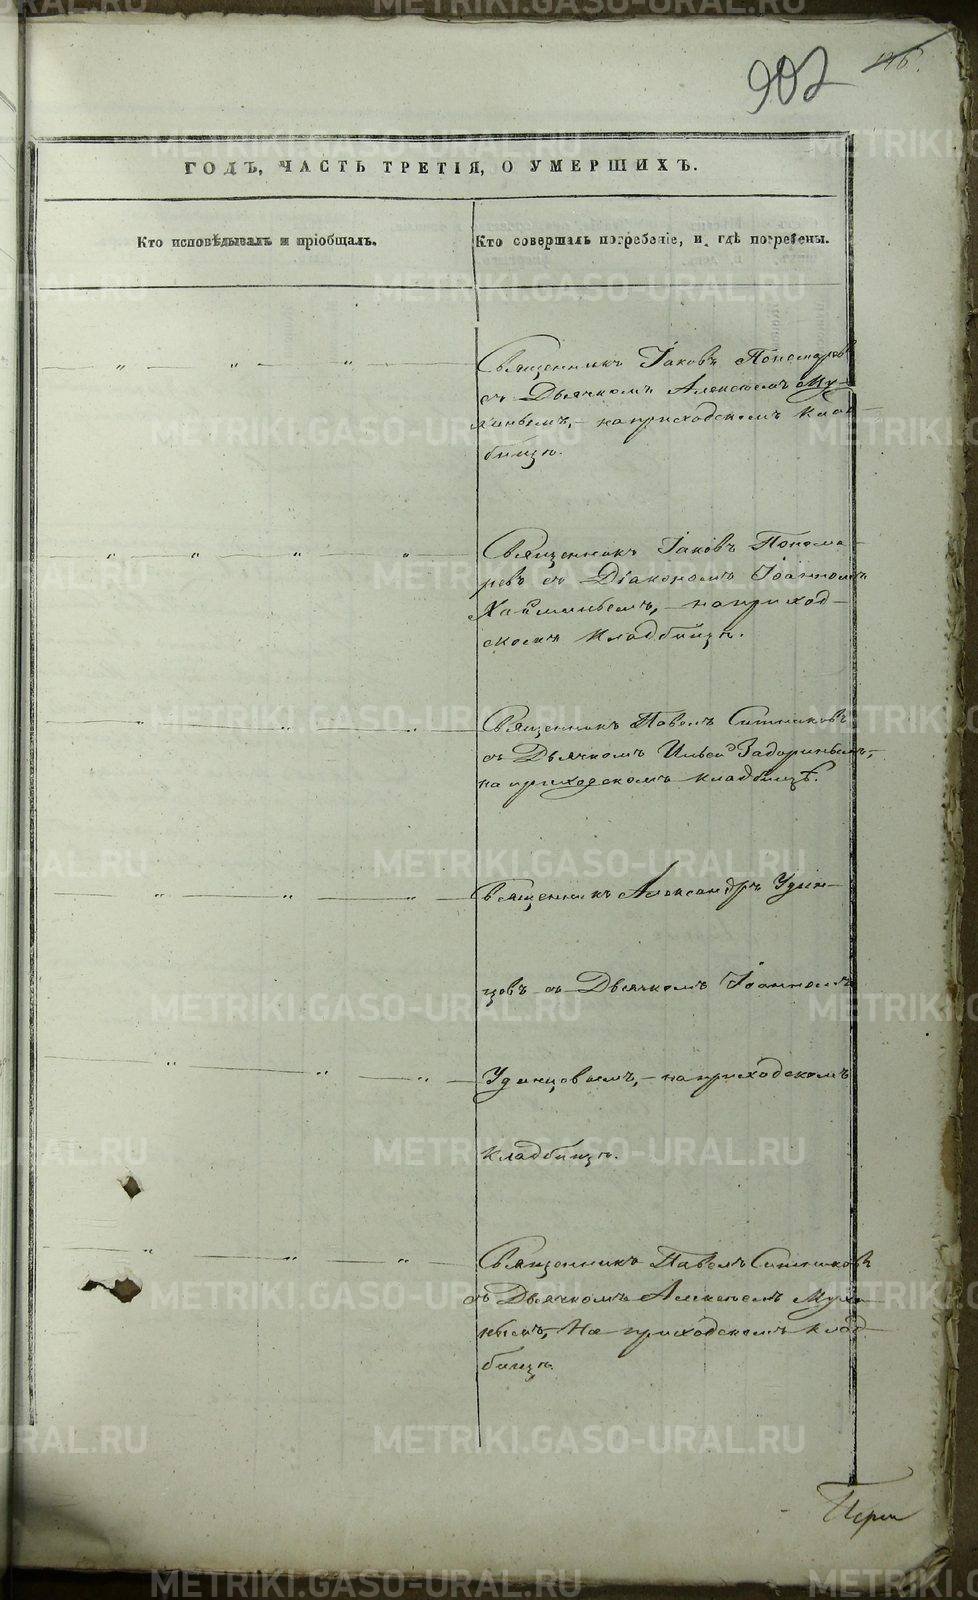 902
146.
ГОДЪ, ЧАСТЬ ТРЕТІЯ, О УМЕРШИХЪ.
Кто исповѣдывалъ и пріобщалъ.
Кто совершалъ погребеніе, и гдѣ погребены.
Священникъ Іаковъ Пономаревъ
съ Дьячкомъ Алексѣемъ Му-
хинымъ, - на приходскомъ клад-
бищѣ.
Священникъ Іаковъ Понома-
ревъ съ Діакономъ Іоанномъ
на приход-
скомъ кладбищѣ.
Священникъ Павелъ Ситниковъ
съ Дьячкомъ Ильей Задоринымъ,
на приходскомъ кладбищѣ.
Священникъ Александръ Удин-
цовъ съ Дьячкомъ Іоанномъ
Удинцовымъ, - на приходскомъ
кладбищѣ.
Священникъ Павелъ Ситниковъ
съ Дьячкомъ Алексѣемъ Мухи-
нымъ, На приходскомъ клад-
бищѣ.
METRIKI.GASO-URAL.RU